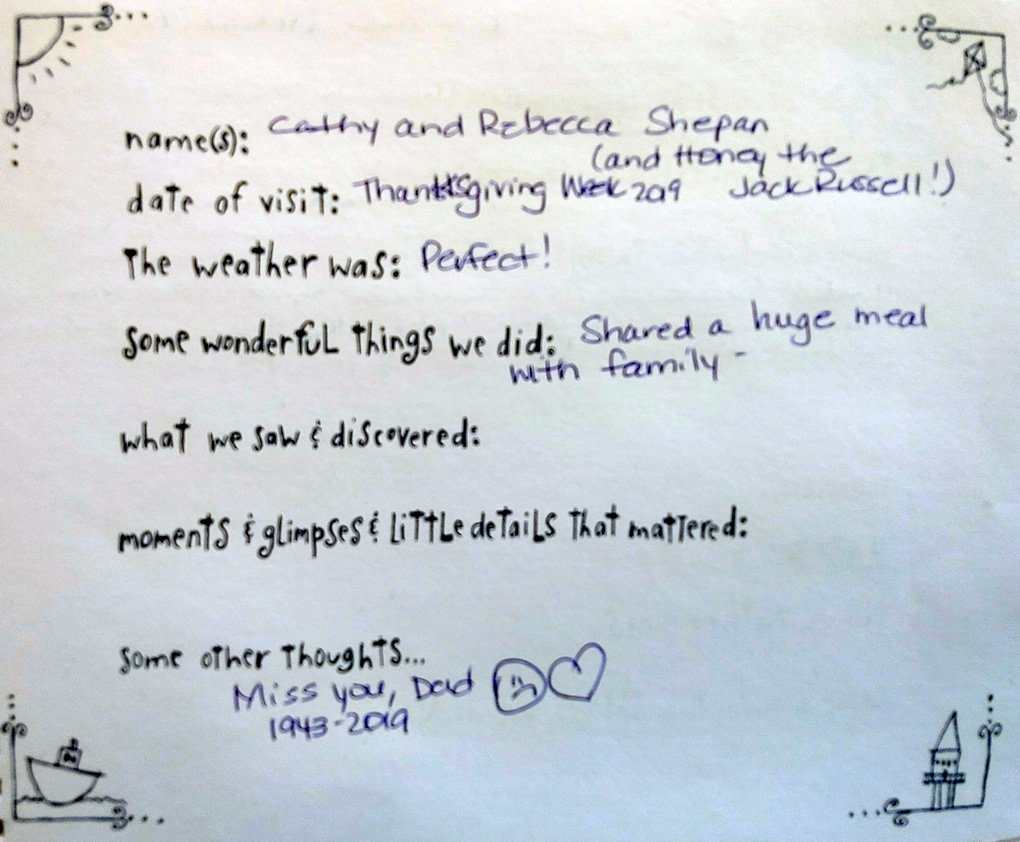 name(s): Cathy and Rebecca Shepan
(and Honey the
date of visit: Thanksgiving Week 2019 Jack Russell!)
the weather was: Perfect!
some wonderful things we did: Shared a huge meal
with family -
what we saw & discovered:
moments & glimpses & little details that mattered:
some other thoughts...
Miss you, Dad
1943-2019